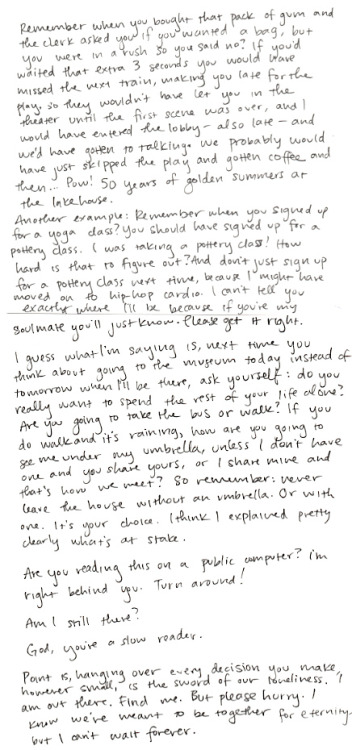 Remember when you bought that pack of gum and
the clerk asked you if you wanted a bag, but
you were in a rush so you said no? If you'd
waited that extra 3 seconds you would have
missed the next train, making you late for the
play, so they wouldn't have let you in the
theater until the first scene was over, and I
would have entered the lobby - also late - and
we'd have gotten to talking. We probably would
have just skipped the play and gotten coffee and
then... Pow! 50 years of golden summers at
the lakehouse.
Another example: Remember when you signed up
for a yoga class? You should have signed up for a
pottery class. I was taking a pottery class! How
hard is that to figure out? And don't just sign up
for a pottery class next time, because I might have
moved on to hip-hop cardio. I can't tell you
exactly where I'll be because if you're my
soulmate you'll just know. Please get it right.
I guess what I'm saying is, next time you
think about going to the museum today instead of
tomorrow when I'll be there, ask yourself: do you
really want to spend the rest of your life alone?
Are you going to take the bus or walk? If you
do walk and it's raining, how are you going to
see me under my umbrella, unless I don't have
one and you share yours, or I share mine and
that's how we meet? So remember: never
leave the house without an umbrella. Or with
one. It's your choice. I think I explained pretty
clearly what's at stake.
Are you reading this on a public computer? I'm
right behind you. Turn around!
Am I still there?
God, you're a slow reader.
Point is, hanging over every decision you make,
however small, is the sword of our loneliness. I
am out there. Find me. But please hurry. I
know we're meant to be together for eternity,
but I can't wait forever.